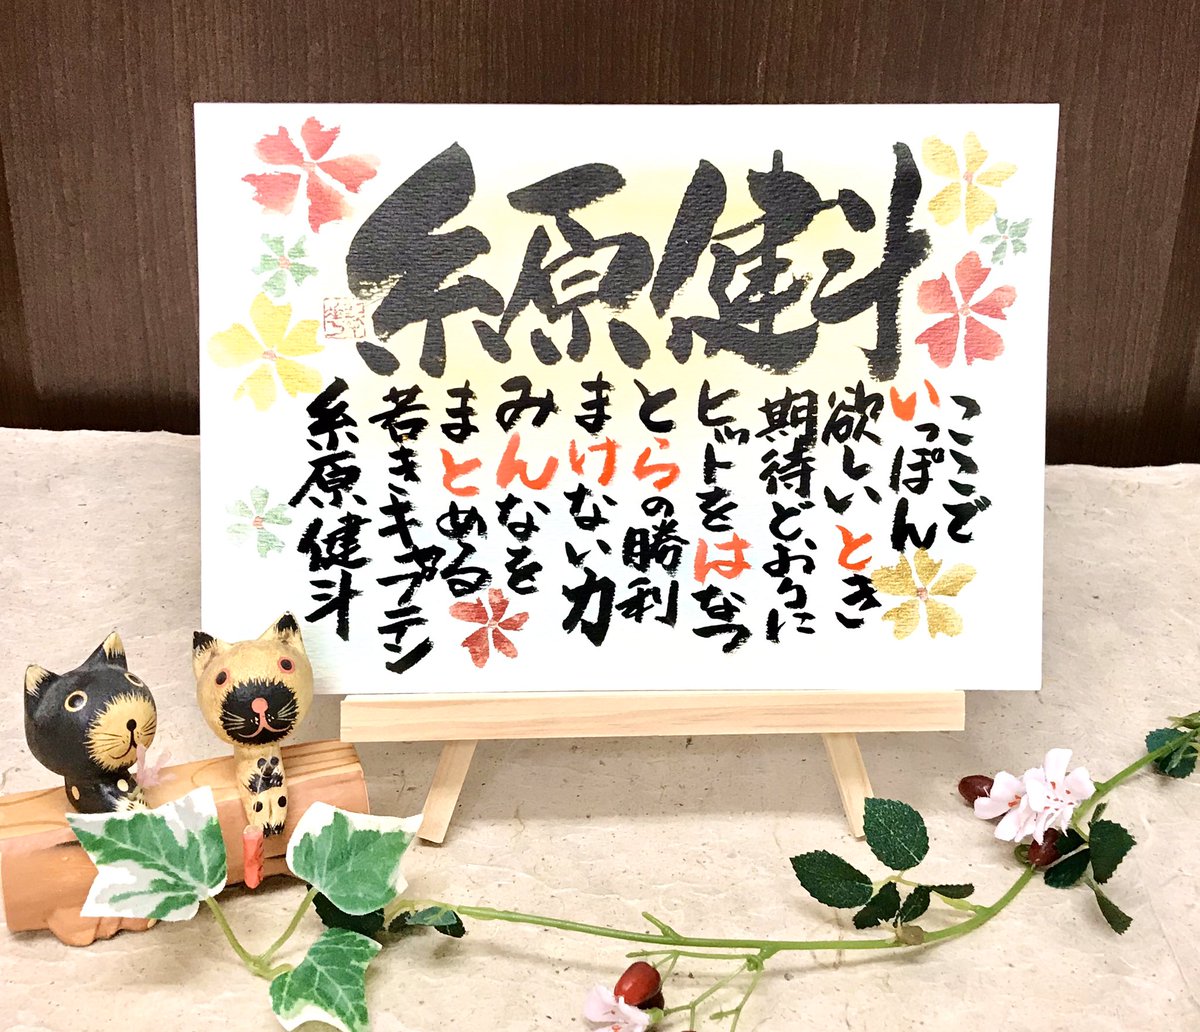 糸原健斗
ここで
いっぽん
欲しいとき
期待どおりに
ヒットをはなつ
とらの勝利
まけない力
みんなを
まとめる
若きキャプテン
糸原健斗